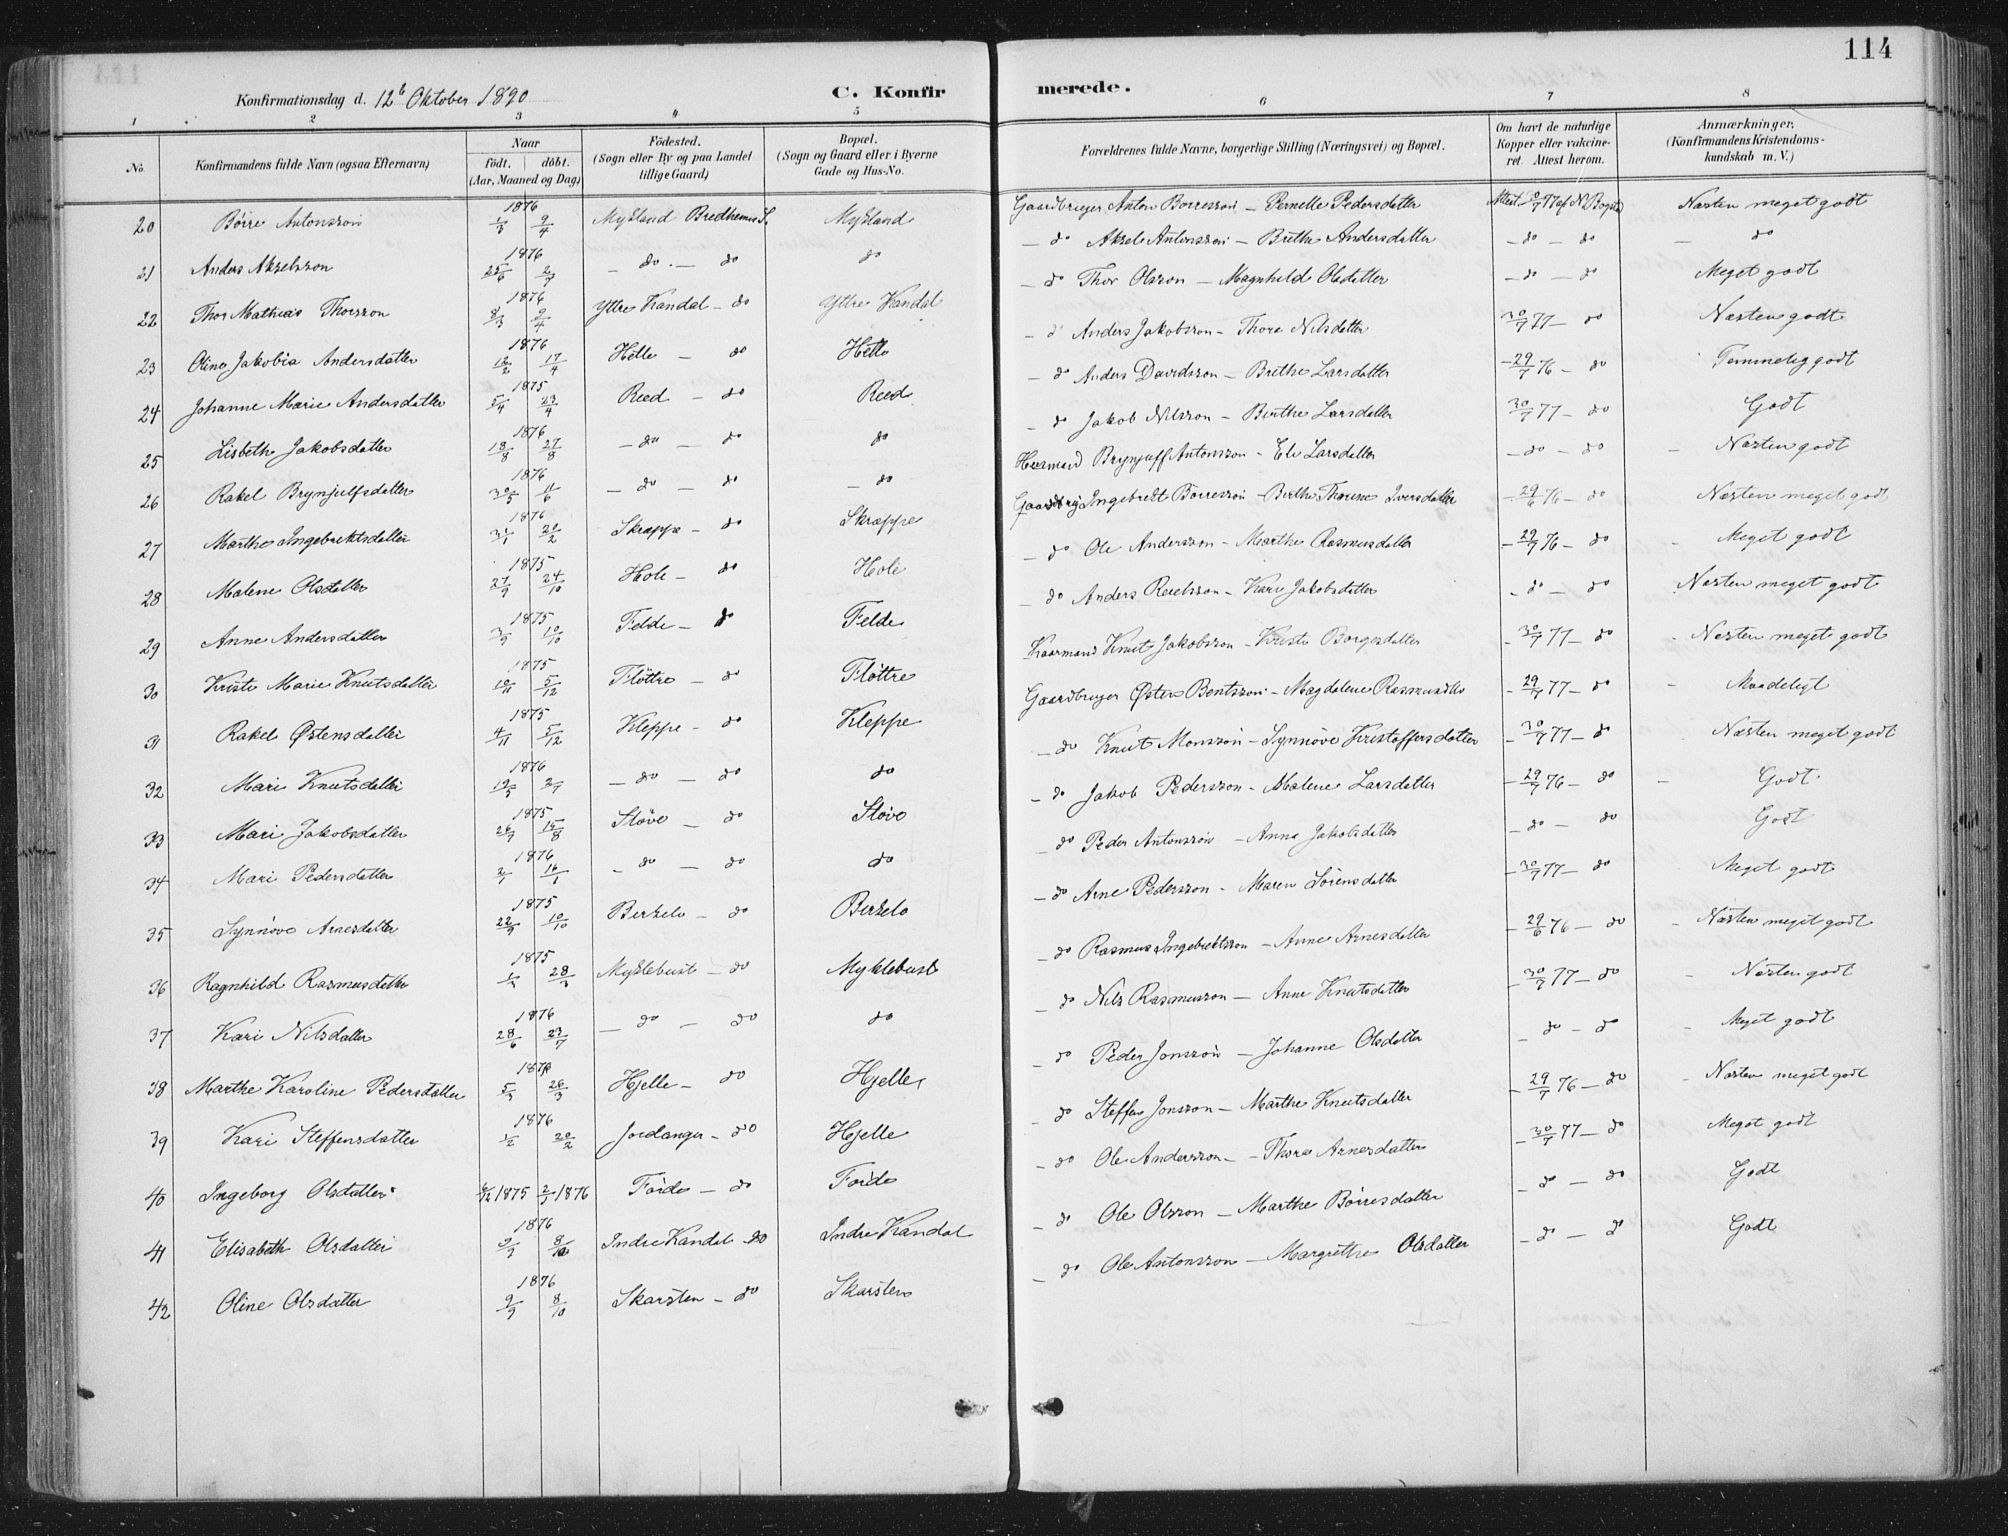 114
Konfirmationsdag d. 12te Oktober 1890 C. Konfirmerede.
1 2 3 4 5 6 7 8
No. Konfirmandens fulde Navn (ogsaa Efternavn) Naar födt. döbt. (Aar, Maaned og Dag) Födested. (Sogn eller By og paa Landet tillige Gaard) Bopæl. (Sogn og Gaard eller i Byerne Gade og Hus-No. Forældrenes fulde Navne, borgerlige Stilling (Næringsvei) og Bopæl. Om havt de naturlige Kopper eller vakcineret. Attest herom. Anmærkninger. (Konfirmandens Kristendomskundskab m. V.)
20 Börre Antonsson 1876 1/3 9/4 Mykland Bredheims S. Mykland Gaardbruger Anton Börresson - Pernelle Pedersdatter Næsten meget godt
21 Anders Akselsson 1876 25/6 2/7 - do - do do - do Aksel Antonsson - Brithe Andersdatter - do - do - do
22 Thor Mathias Thorsson 1876 8/3 9/4 Yttre Kandal - do Yttre Kandal - do Thor Olsson - Magnhild Olsdatter - do - do Meget godt
23 Oline Jakobia Andersdatter 1876 12/2 17/4 Helle - do Helle - do Anders Jakobsson - Thora Nilsdatter 30/7 77 - do Næsten godt
24 Johanne Marie Andersdatter 1875 5/4 23/4 Reed - do Reed - do Anders Davidsson - Brithe Larsdatter - 29/7 76 - do Temmelig godt
25 Lisbeth Jakobsdatter 1876 18/8 27/8 - do - do do - do Jakob Nilsson - Birthe Larsdatter 30/7 77 - do Godt
26 Rakel Brynjulfsdatter 1876 30/5 11/6 - do - do - do Huusmand Brynjulf Antonsson - Eli Larsdatter - do - do - Næsten godt
27 Marthe Ingebrektsdatter 1876 31/1 20/2 Skrappe - do Skræppe Gaardbrug Ingebrekt Börresson - Birthe Thorine Iversdatter - 29/6 76 - do Næsten meget godt
28 Malene Olsdatter 1875 27/9 24/10 Hole - do Hole - do Ole Andersson - Marthe Rasmusdatter - 29/7 76 - do - Meget godt
29 Anne Andersdatter 1875 3/9 10/10 Felde - do Felde - do Anders - Kari Jakobsdatter - do - do Næsten meget godt
30 Kristi Marie Knutsdatter 1875 10/11 5/12 Flöttre - do Flöttre Knut Jakobsson - Kristi Börgesdatter - 30/7 77 - do - Næsten meget godt
31 Rakel Østensdatter 1875 4/11 5/12 Kleppe - do Kleppe Gaardbruger Østen Bentsson - Magdalene - 29/7 77 - do - Maadeligt
32 Mari Knutsdatter 1876 - do - do do - do Knut Monsson - Synnöve Kristoffersdatter - 30/7 77 - do Næsten meget godt
33 Mari Jakobsdatter 1875 15/8 Slöve - do Slöve - do Jakob Pedersson - Malene Larsdatter - 29/7 76 - do - Godt
34 Mari Pedersdatter 1876 2/1 16/1 - do - do do - do Peder Antonsson - Anna Jakobsdatter - do - do Godt
35 Synnöve Arnesdatter 1875 22/9 10/10 Berkelo - do Berkelo - do Arne Pedersson - Maren Sörensdatter - 30/7 77 - do Meget godt
36 Ragnhild Rasmusdatter 1875 Myklebust - do Myklebust - do Rasmus Ingebrektsson - Anne Arnesdatter - 29/6 76 - do - Næsten meget godt
37 Kari Nilsdatter 1876 28/6 23/7 - do - do do - do Nils Rasmusson - Anne Knutsdatter - 30/7 77 - do - Næsten godt
38 Marthe Karoline Pedersdatter 1876 5/3 26/3 Hjelle - do Hjelle - do Peder Jonsson - Johanne Olsdatter - do - do - Meget godt
39 Kari Steffensdatter 1876 1/2 20/2 Jordanger - do Hjelle - do Steffen Jonsson - Marthe Knutsdatter - 29/7 76 - do - Næsten meget godt
40 Ingeborg Olsdatter 1875 2/1 1876 Förde - do Förde - do Ole Andersson - Thora Arnesdatter - 30/7 77 - do Meget godt
41 Elisabeth Olsdatter 1876 9/9 8/10 Indre Kandal do Indre Kandal - do Ole Olsson - Marthe Börresdatter - do - do Godt
42 Oline Olsdatter 1876 9/9 8/10 Skarsten - do Skarsten - do Ole Antonsson - Margrethe Olsdatter - do - do Godt